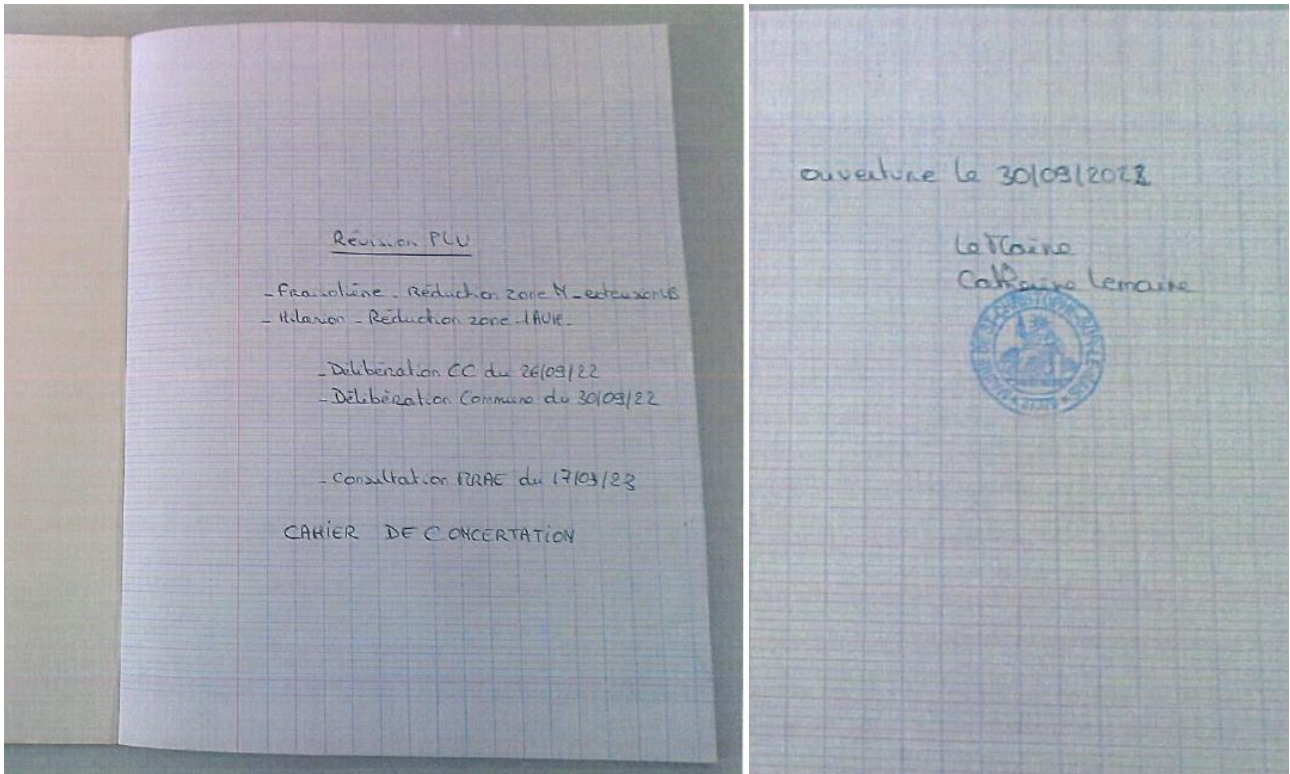 Révision PLU
- Réduction zone N - extension UB
- Hilarion - Réduction zone 1AUH -
- Délibération CC du 26/09/22
- Délibération Commune du 30/09/22
- Consultation MRAE du 17/03/23
CAHIER DE CONCERTATION
ouverture le 30/09/2022
Le Maire
Catherine Lemaire